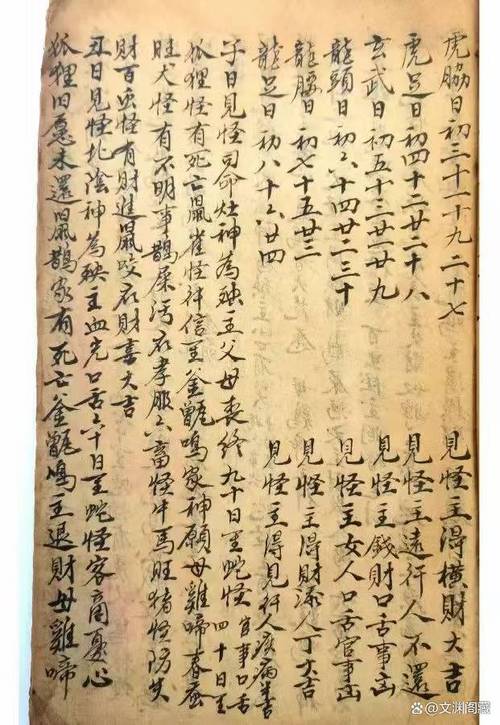 虎脇日初三十一十九二十七 見怪主得橫財大吉
虎足日初四十二廿二十八 見怪主遠行人不還
玄武日初五十三廿一廿九 見怪主錢財口舌事凶
龍頭日初六十四廿二三十 見怪主女人口舌官事凶
龍腰日初七十五廿三 見怪主得財添人丁大吉
龍足日初八十六廿四 見怪主得見行人疾病
子日見怪司命灶神為殃主父母喪終九十日至蛇怪官事口舌四十日至
狐狸怪有死亡鼠雀怪祥信至釜甑鳴家神願母雞啼春蚕
旺犬怪有不明事鵲屎污衣孝服六畜怪牛馬旺猪怪防失
財百虫怪有財進鼠咬衣財喜大吉
丑日見怪北陰神為殃主血光口舌六十日至蛇怪客商憂心
狐狸旧愿未還鼠鵲家有死亡釜甑鳴主退財母雞啼
@文渊阁藏